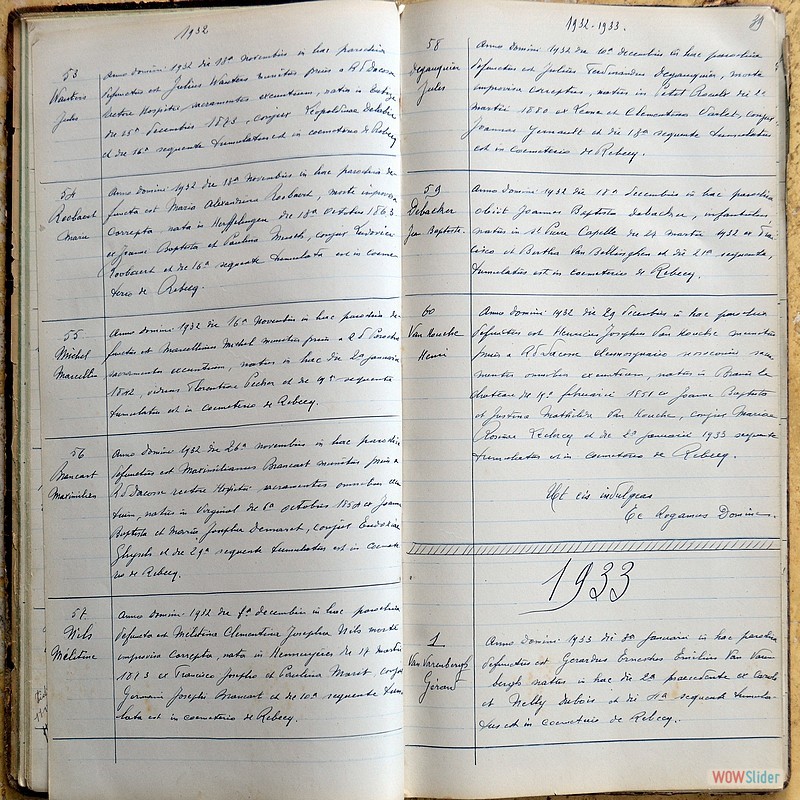 1932
53
Wauters
Jules
Anno domini 1932 die 13a Novembris in hac parochia
defunctus est Julius Wauters munitus prius a R d Jacosse
rectore Hospitii, sacramentis exeuntium, natus in
die 15a decembris 1873, conjux Leopoldinae Debecker
et die 16a sequente tumulatus est in coemeterio de Rebecq
54
Rosbaert
Marie
Anno domini 1932 die 13a Novembris in hac parochia de-
functa est Maria Alexandrina Rosbaert, morte improvisa
correpta nata in Herffelingen die 18a octobris 1863
ex Joanne Baptista et Paulina Musch, conjux Ludovici
et die 16a sequente tumulata est in coeme
terio de Rebecq.
55
Michel
Marcellin
Anno domini 1932 die 16a Novembris in hac parochia de-
functus est Marcellinus Michel munitus prius a R d Parocho
sacramentis exeuntium, natus in hac die 20 januarii
1842, viduus Florentinae Pechon et die 19a sequente
tumulatus est in coemeterio de Rebecq.
56
Brancart
Maximilien
Anno domini 1932 die 26a novembris in hac parochia
defunctus est Maximilianus Brancart munitus prius a
R d Jacosse rectore Hospitii sacramentis omnibus exeun
tium, natus in Virginal die 6a octobris 1854 ex Joanne
Baptista et Maria Josepha Demaret, conjux
et die 29a sequente tumulatus est in coemete
rio de Rebecq.
57
Nils
Mélitine
Anno domini 1932 die 7a decembris in hac parochia
defuncta est Melitina Clementina Josepha Nils morte
improvisa correpta, nata in Hennuyeres die 17 martii
1873 ex Francisco Josepho et Carolina Marit, conjux
Germani Josephi Brancart et die 10a sequente tumu
lata est in coemeterio de Rebecq.
1932-1933.
39
58
Deganquier
Jules
Anno Domini 1932 die 10a decembris in hac parochia
defunctus est Julius Ferdinandus Deganquier, morte
improvisa correptus, natus in Petit Roeulx die 2a
martii 1880 ex et Clementina Carlet, conjux
Joannae et die 13a sequente tumulatus
est in Coemeterio de Rebecq.
59
Debacker
Jean Baptiste.
Anno Domini 1932 die 18a decembris in hac parochia
obiit Joannes Baptista debacker, infantulus,
natus in St Pierre Capelle die 24 martii 1932 ex Fran
cisco et Bertha Van Bellinghen et die 21a sequente,
tumulatus est in coemeterio de Rebecq.
60
Van Koucke
Henri
Anno domini 1932 die 29 decembris in hac parochia
defunctus est Henricus Josephus Van Koucke munitus
prius a R d Jacosse sacra
mentis omnibus exeuntium, natus in Braine le
chateau die 19a februarii 1851 ex Joanne Baptista
et Justina Mathilda Van Koucke, conjux Mariae
Rosinae et die 2a januarii 1933 sequente
tumulatus est in coemeterio de Rebecq.
Ut eis indulgeas
Te Rogamus Domine.
1933
1
Van Varenbergh
Gérard
Anno Domini 1933 die 3a januarii in hac parochia
defunctus est Gerardus Ernestus Emilius Van Varen
bergh natus in hac die 2a praecedente ex Carolo
et Nelly dubois et die 4a sequente tumula-
tus est in coemeterio de Rebecq.
WOWSlider